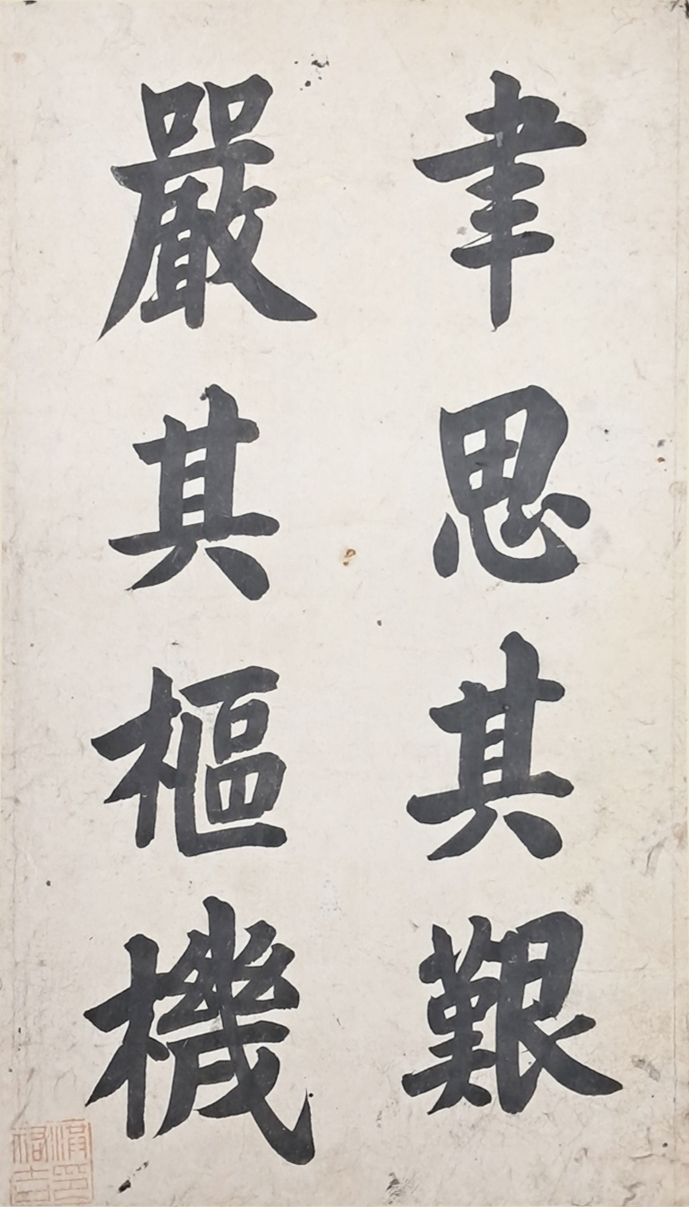 聿思其艱
嚴其樞機